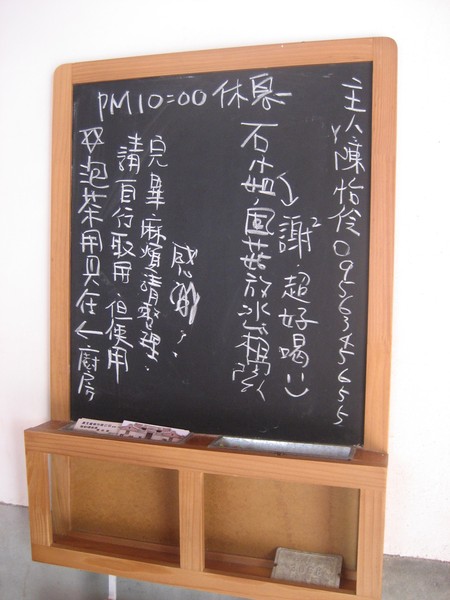 PM10:00 休息
主人陳怡伶0956345655
謝² 超好喝
放冰箱
感
完畢麻煩請整理.
請自行取用 但使用
✡泡茶用具在←廚房